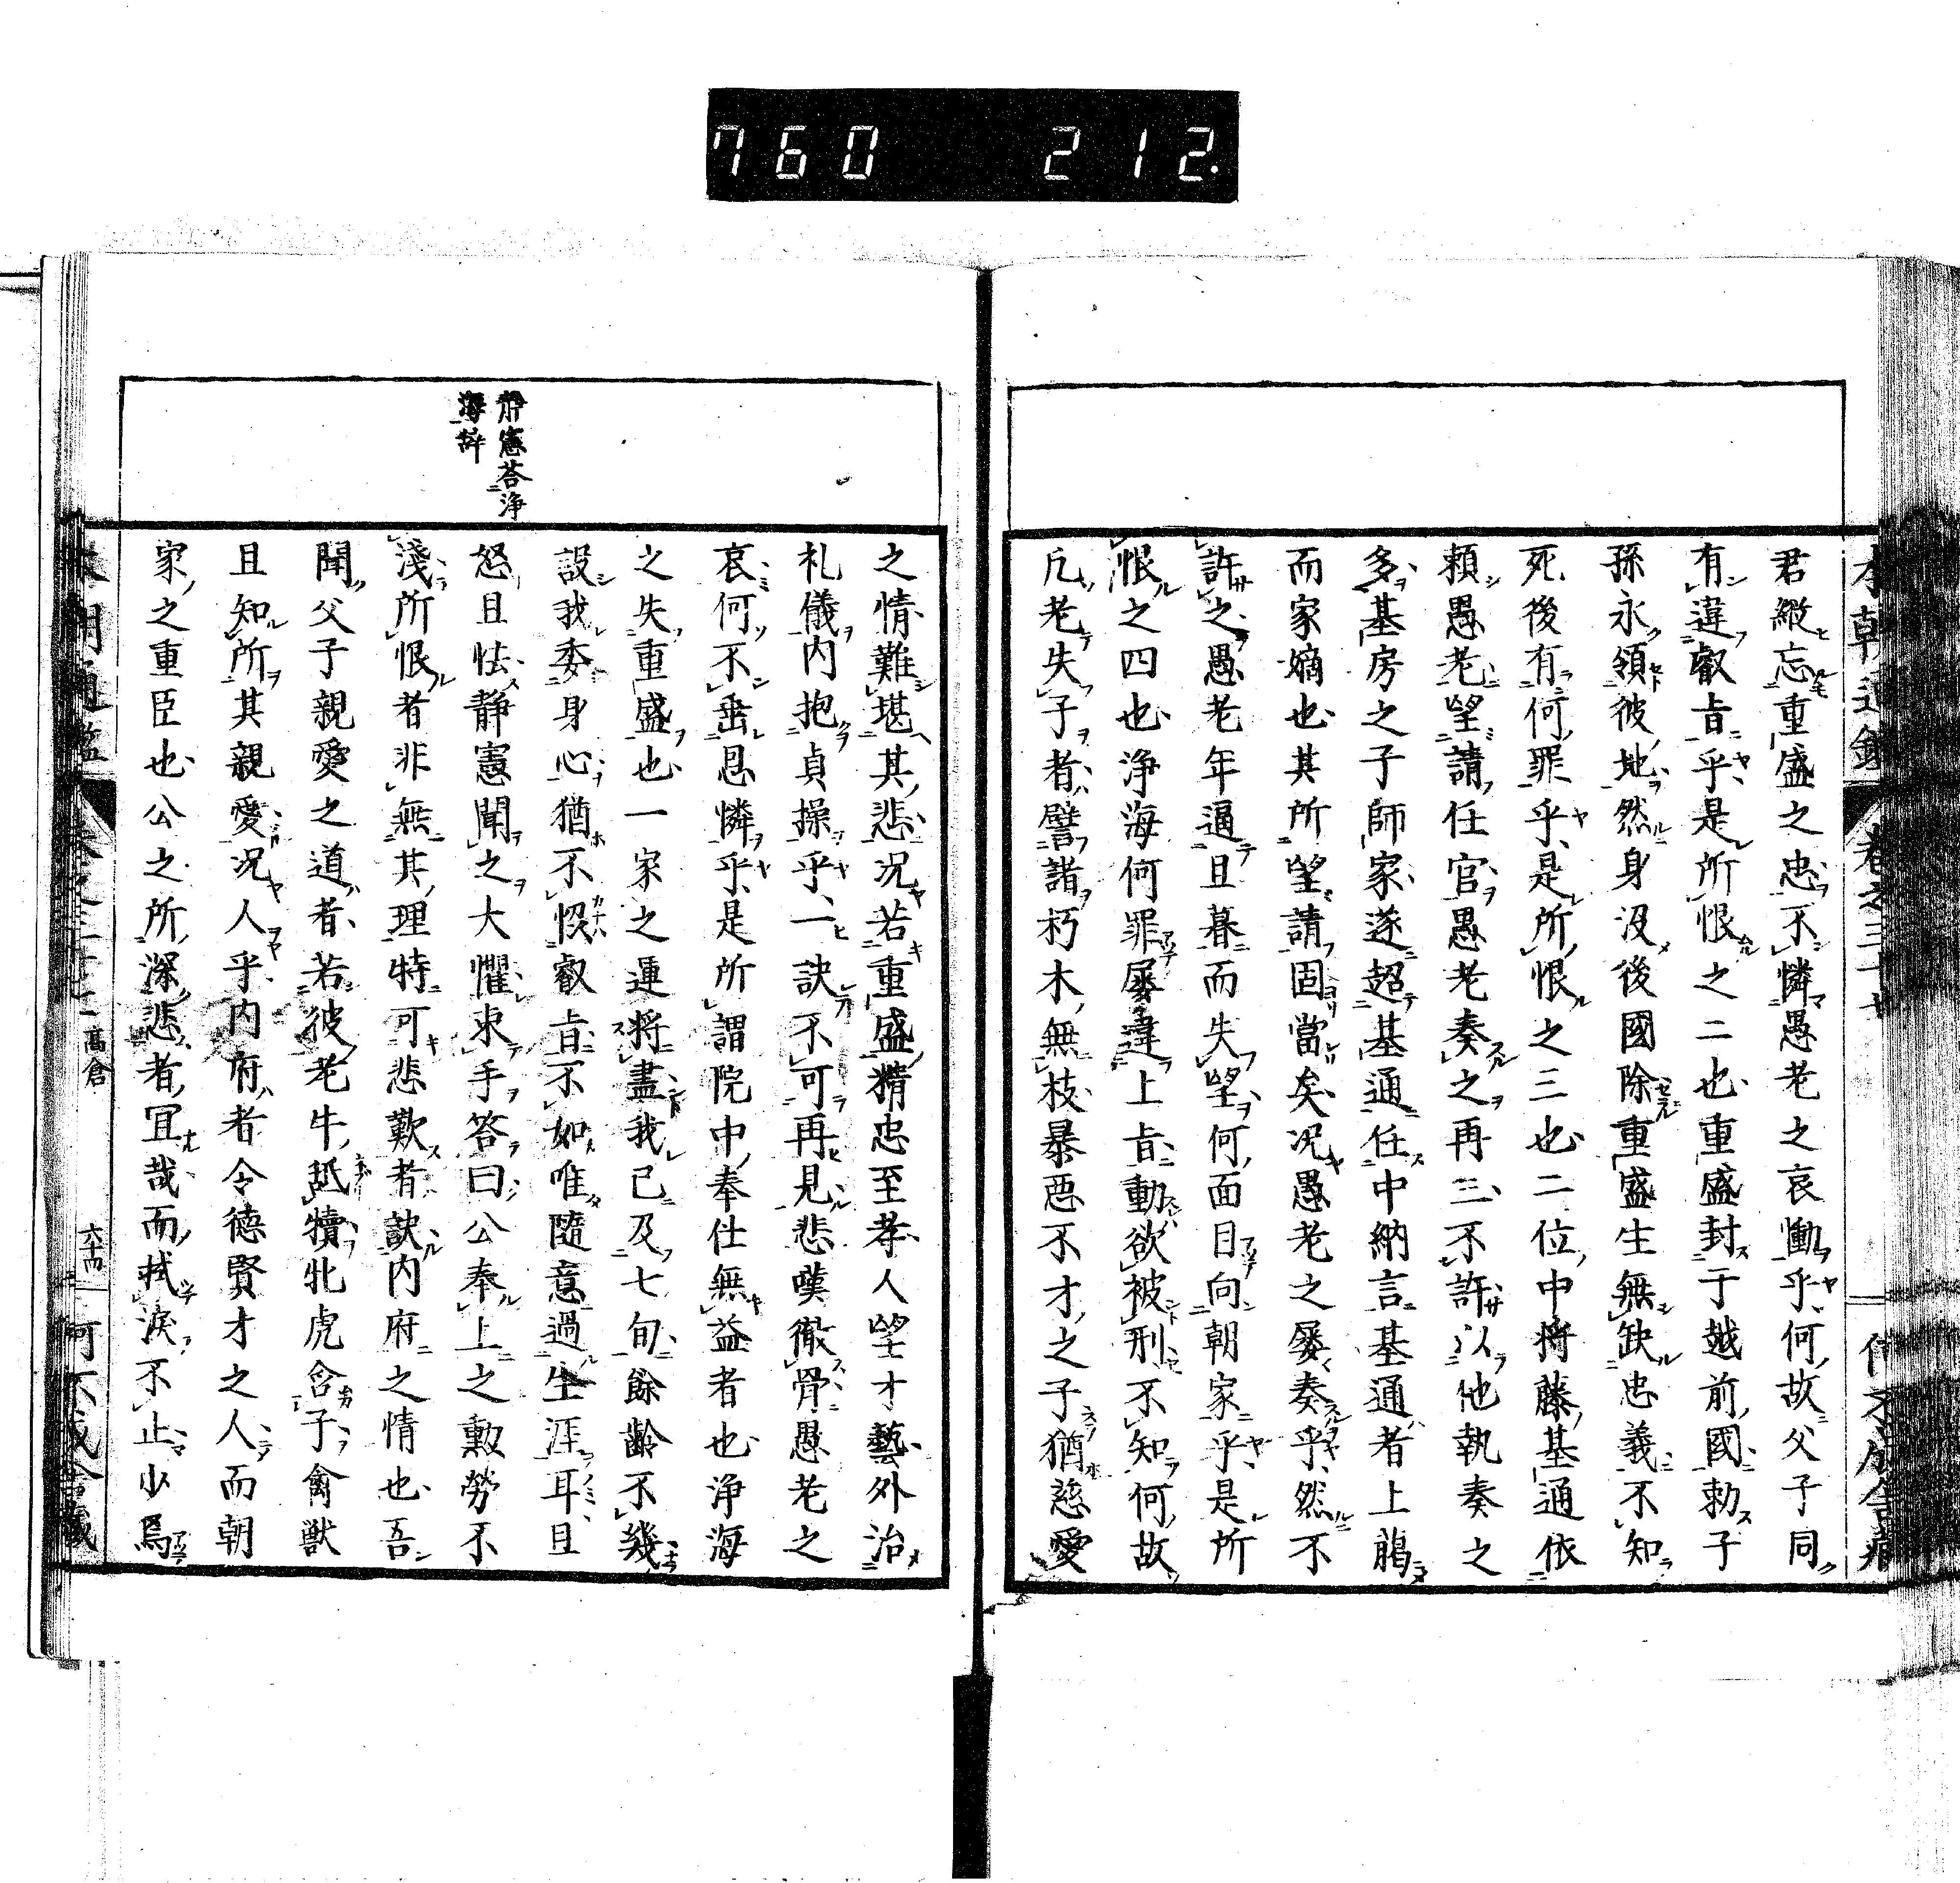 760 212.
君縱忘重盛之忠不憐愚老之哀慟乎何故父子同
有違叡旨乎是所恨之二也重盛封于越前國勅子
孫永領彼地然身沒後國除重盛生無缺忠義不知
死後有何罪乎是所恨之三也二位中將藤基通依
賴愚老望請任官愚老奏之再三不許以他執奏之
多基房之子師家遂超基通任中納言基通者上﨟
而家嫡也其所望請固當矣况愚老之屢奏乎然不
許之愚老年逼且暮而失望何面目向朝家乎是所
恨之四也浄海何罪屢違上旨動欲被刑不知何故
凡老失子者譬諸朽木無枝暴惡不才之子猶慈愛
静憲荅浄
海辞
之情難堪其悲况若重盛精忠至孝人望才藝外治
礼儀内抱貞操乎一訣不可再見悲嘆徹骨愚老之
哀何不垂恩憐乎是所謂院中奉仕無益者也浄海
之失重盛也一家之運將盡我已及七旬餘齡不幾
設我委身心猶不愜叡旨不如唯隨意過生涯耳且
怒且怯静憲聞之大懼束手答曰公奉上之勲勞不
淺所恨者非無其理特可悲歎者訣内府之情也吾
聞父子親愛之道者若彼老牛舐犢牝虎含子禽獸
且知所其親愛况人乎内府者令德賢才之人而朝
家之重臣也公之所深悲者冝哉而拭淚不止少焉
髙倉
六十四